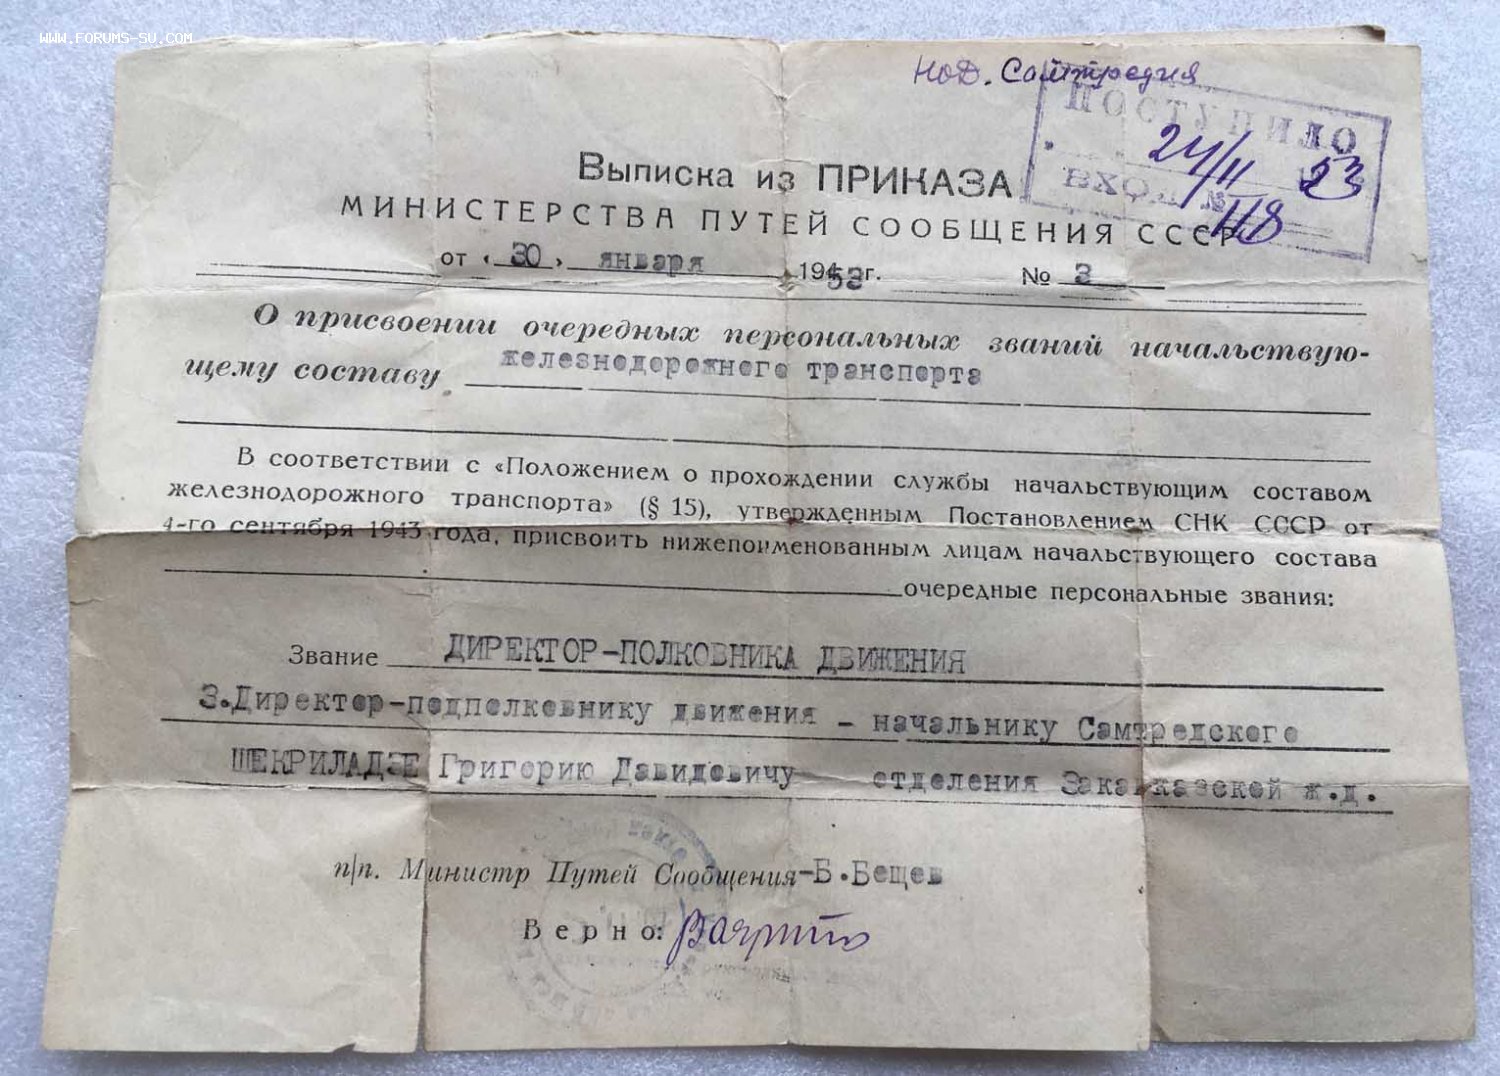 WWW.FORUMS-SU.COM
НОД. Самтредия
ПОСТУПИЛО
24/II 53
ВХОД. № 118
Выписка из ПРИКАЗА
МИНИСТЕРСТВА ПУТЕЙ СООБЩЕНИЯ СССР
от « 30 » января 1953 г. № 3
О присвоении очередных персональных званий начальствую-
щему составу железнодорожного транспорта
В соответствии с «Положением о прохождении службы начальствующим составом
железнодорожного транспорта» (§ 15), утвержденным Постановлением СНК СССР от
4-го сентября 1943 года, присвоить нижепоименованным лицам начальствующего состава
очередные персональные звания:
Звание ДИРЕКТОР-ПОЛКОВНИКА ДВИЖЕНИЯ
3.Директор-подполковнику движения – начальнику Самтредского
ШЕКРИЛАДЗЕ Григорию Давидовичу отделения Закавказской ж.д.
п/п. Министр Путей Сообщения-Б.Бещев
Верно: